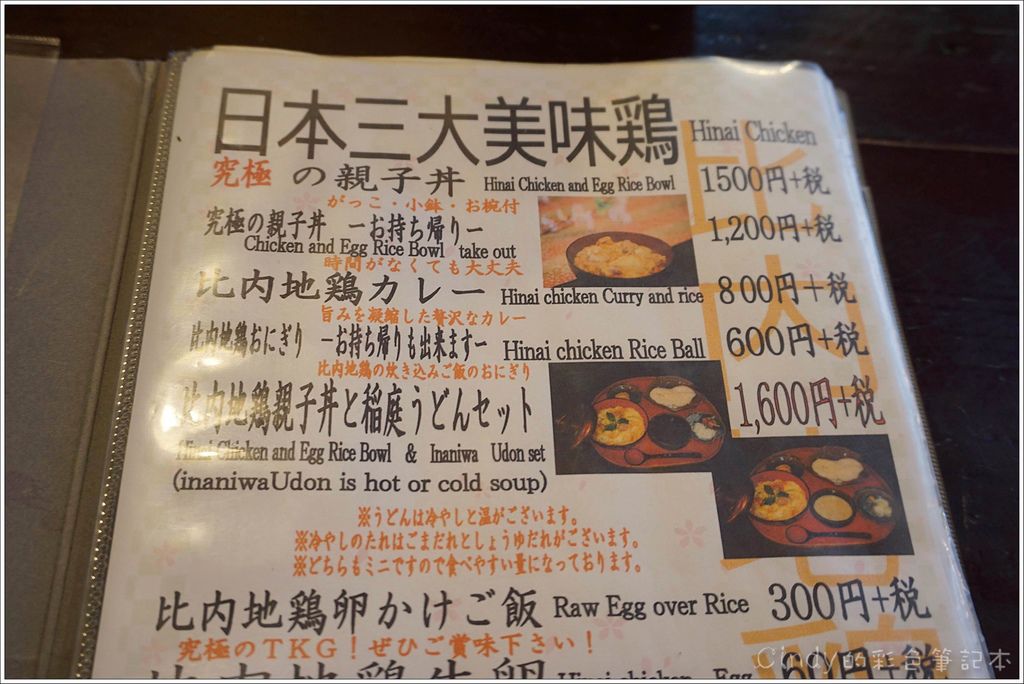 日本三大美味鶏 Hinai Chicken
究極の親子丼 Hinai Chicken and Egg Rice Bowl 1500円+税
がっこ・小鉢・お椀付
究極の親子丼 ーお持ち帰りー 1,200円+税
Chicken and Egg Rice Bowl take out
時間がなくても大丈夫
比内地鶏カレー Hinai chicken Curry and rice 800円+税
旨みを凝縮した贅沢なカレー
比内地鶏おにぎり ーお持ち帰りも出来ますー Hinai chicken Rice Ball 600円+税
比内地鶏の炊き込みご飯のおにぎり
比内地鶏親子丼と稲庭うどんセット 1,600円+税
Hinai Chicken and Egg Rice Bowl & Inaniwa Udon set
(inaniwaUdon is hot or cold soup)
※うどんは冷やしと温がございます。
※冷やしのたれはごまだれとしょうゆだれがございます。
※どちらもミニですので食べやすい量になっております。
比内地鶏卵かけご飯 Raw Egg over Rice 300円+税
究極のTKG！ぜひご賞味下さい！
比内地鶏生卵 Hinai chicken Egg 60円+税
Cindy的彩色筆記本